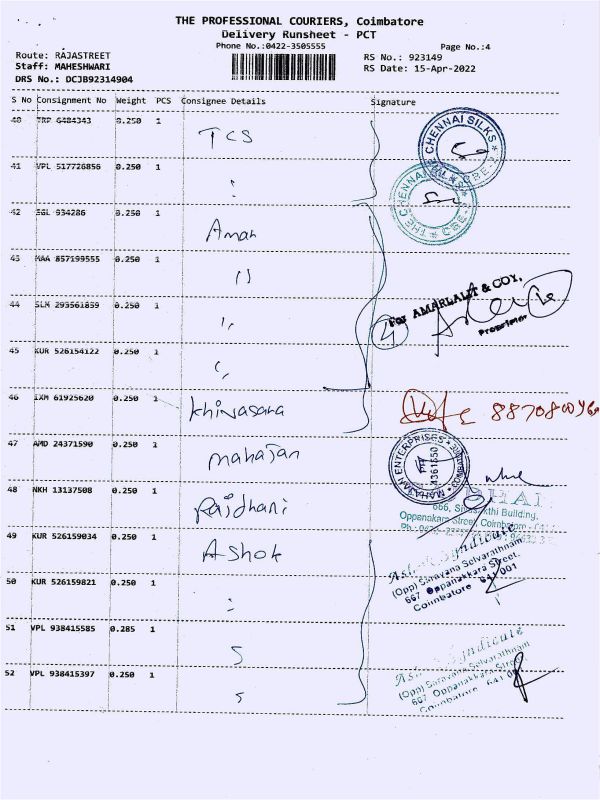 THE PROFESSIONAL COURIERS, Coimbatore
Delivery Runsheet - PCT
Phone No.:0422-3505555
Page No.:4
Route: RAJASTREET
RS No.: 923149
Staff: MAHESHWARI
RS Date: 15-Apr-2022
DRS No.: DCJB92314904
S No Consignment No Weight PCS Consignee Details Signature
40 TRP 6484343 0.250 1 TCS
THE CHENNAI SILKS * CBE *
41 VPL 517726856 0.250 1 :
THE CHENNAI SILKS * CBE *
42 EGL 934286 0.250 1 Aman
43 MAA 857199555 0.250 1 "
44 SLM 293561859 0.250 1 "
4
For AMARLALIT & COY,
Proprietor
45 KUR 526154122 0.250 1 "
46 IXM 61925620 0.250 1 Khivasara
47 AMD 24371590 0.250 1 mahajan
MAHAJAN ENTERPRISES
4361550
48 NKH 13137508 0.250 1 Rajdhani
666, Building,
Oppenakara Street, Coimbatore
49 KUR 526159034 0.250 1 Ashok
Syndicate
(Opp) Saravana Selvarathnam
667 Oppanakkara Street.
Coimbatore 641 001
50 KUR 526159821 0.250 1 :
51 VPL 938415585 0.285 1
Syndicate
(Opp) Saravana Selvarathnam
667 Oppanakkara Street
Coimbatore
52 VPL 938415397 0.250 1